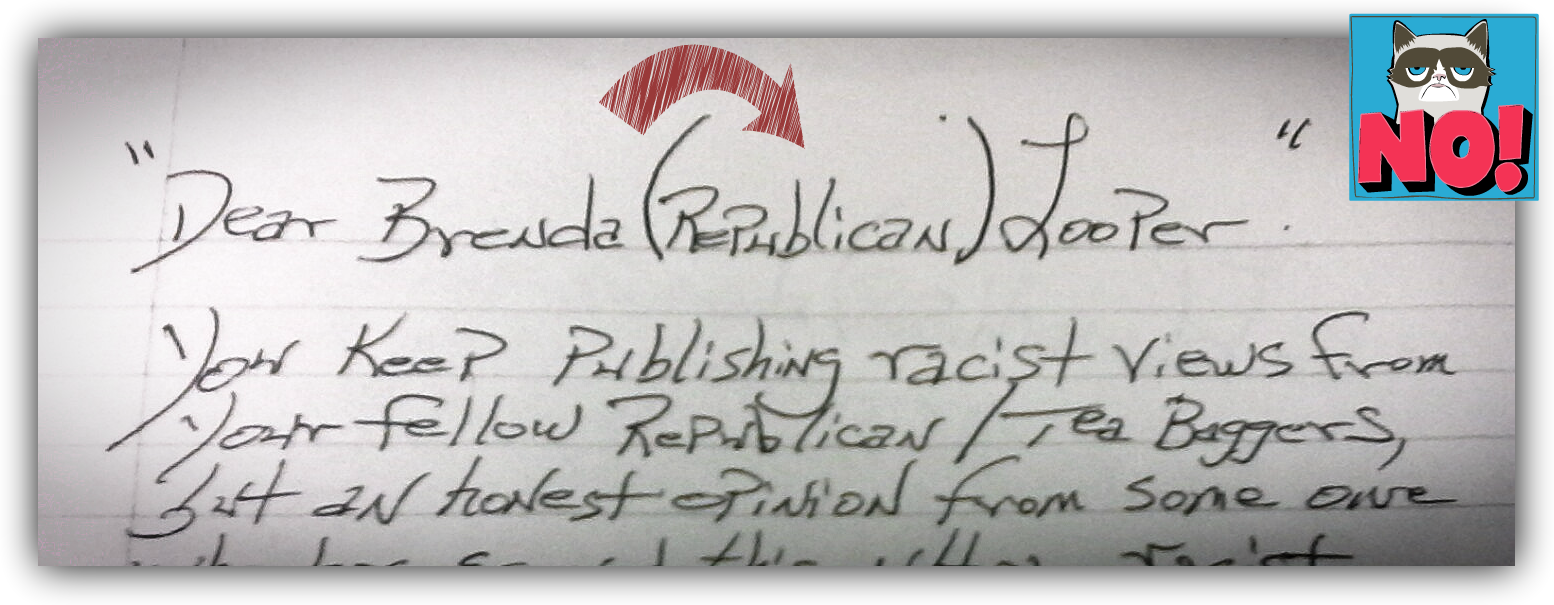 NO!
"Dear Brenda (Republican) Looper. "
You Keep Publishing racist views from
Your fellow Republican/Tea Baggers,
but an honest opinion from some one
racist